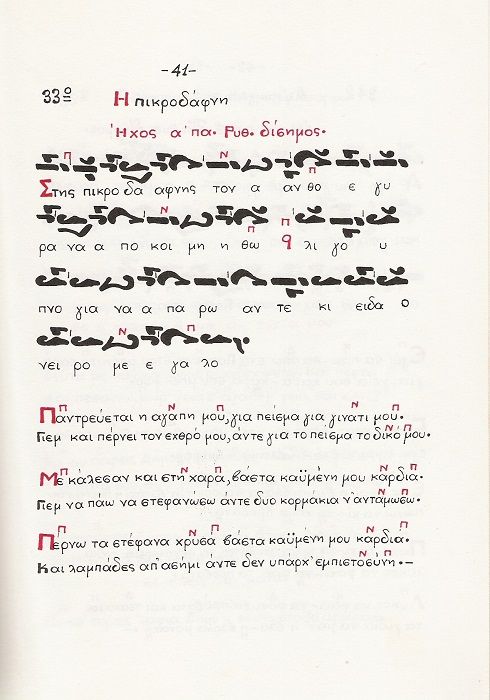 -41-
33ο Η πικροδάφνη
Ήχος α' πα. Ρυθ. δίσημος.
Π Ν Π
Στης πικρο δα αφνης τον α αν θο ε γυ
Ν Π Π
ρα να α πο κοι μη η θω q λι γο υ
πνο για να α πα ρω αν τε κι ειδα ο
Ν Π
νει ρο με ε γα λο
Παντρεύεται η αγαπη μου, για πείσμα για γινατι μου.
Γιεμ και πέρνει τον εχθρό μου, άντε για το πείσμα το δικό μου.
Με κάλεσαν και στη χαρά, βάστα καϋμένη μου καρδια.
Γιεμ να πάω να στεφανώσω άντε δυο κορμάκια ν' ανταμωσω.
Πέρνω τα στέφανα χρυσα βαστα καϋμένη μου καρδια.
Και λαμπάδες απ' ασήμι άντε δεν υπάρχ' εμπιστοσύνη.-